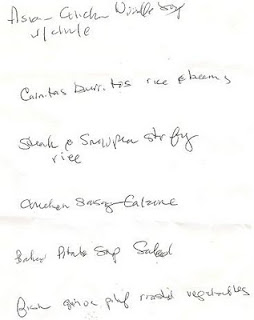 Asian Chicken Noodle Soup
w/chile
Carnitas burritos rice & beans
Steak & Snowpea stir fry
rice
Chicken Sausage Calzone
Baked Potato Soup Salad
quinoa pilaf roasted vegetables